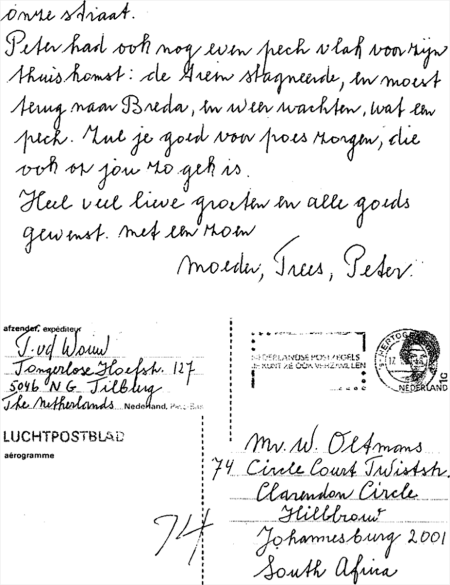 onze straat.
Peter had ook nog even pech vlak voor zijn
thuiskomst: de trein stagneerde, en moest
terug naar Breda, en weer wachten, wat een
pech. Zul je goed voor poes zorgen, die
ook op jou zo gek is.
Heel veel lieve groeten en alle goeds
gewenst. met een zoen
moeder, Trees, Peter.
afzender, expéditeur
T. vd Wouw
Tongerlose Hoefstr. 127
5046 NG Tilburg
The Netherlands Nederland, Pays-Bas
LUCHTPOSTBLAD
aérogramme
NEDERLANDSE POSTZEGELS
JE KUNT ZE OOK VERZAMELEN
'S-HERTOGE
NEDERLAND
Mr. W. Oltmans
74 Circle Court Twiststr.
Clarendon Circle
Hillbrouw
Johannesburg 2001
South Africa
74